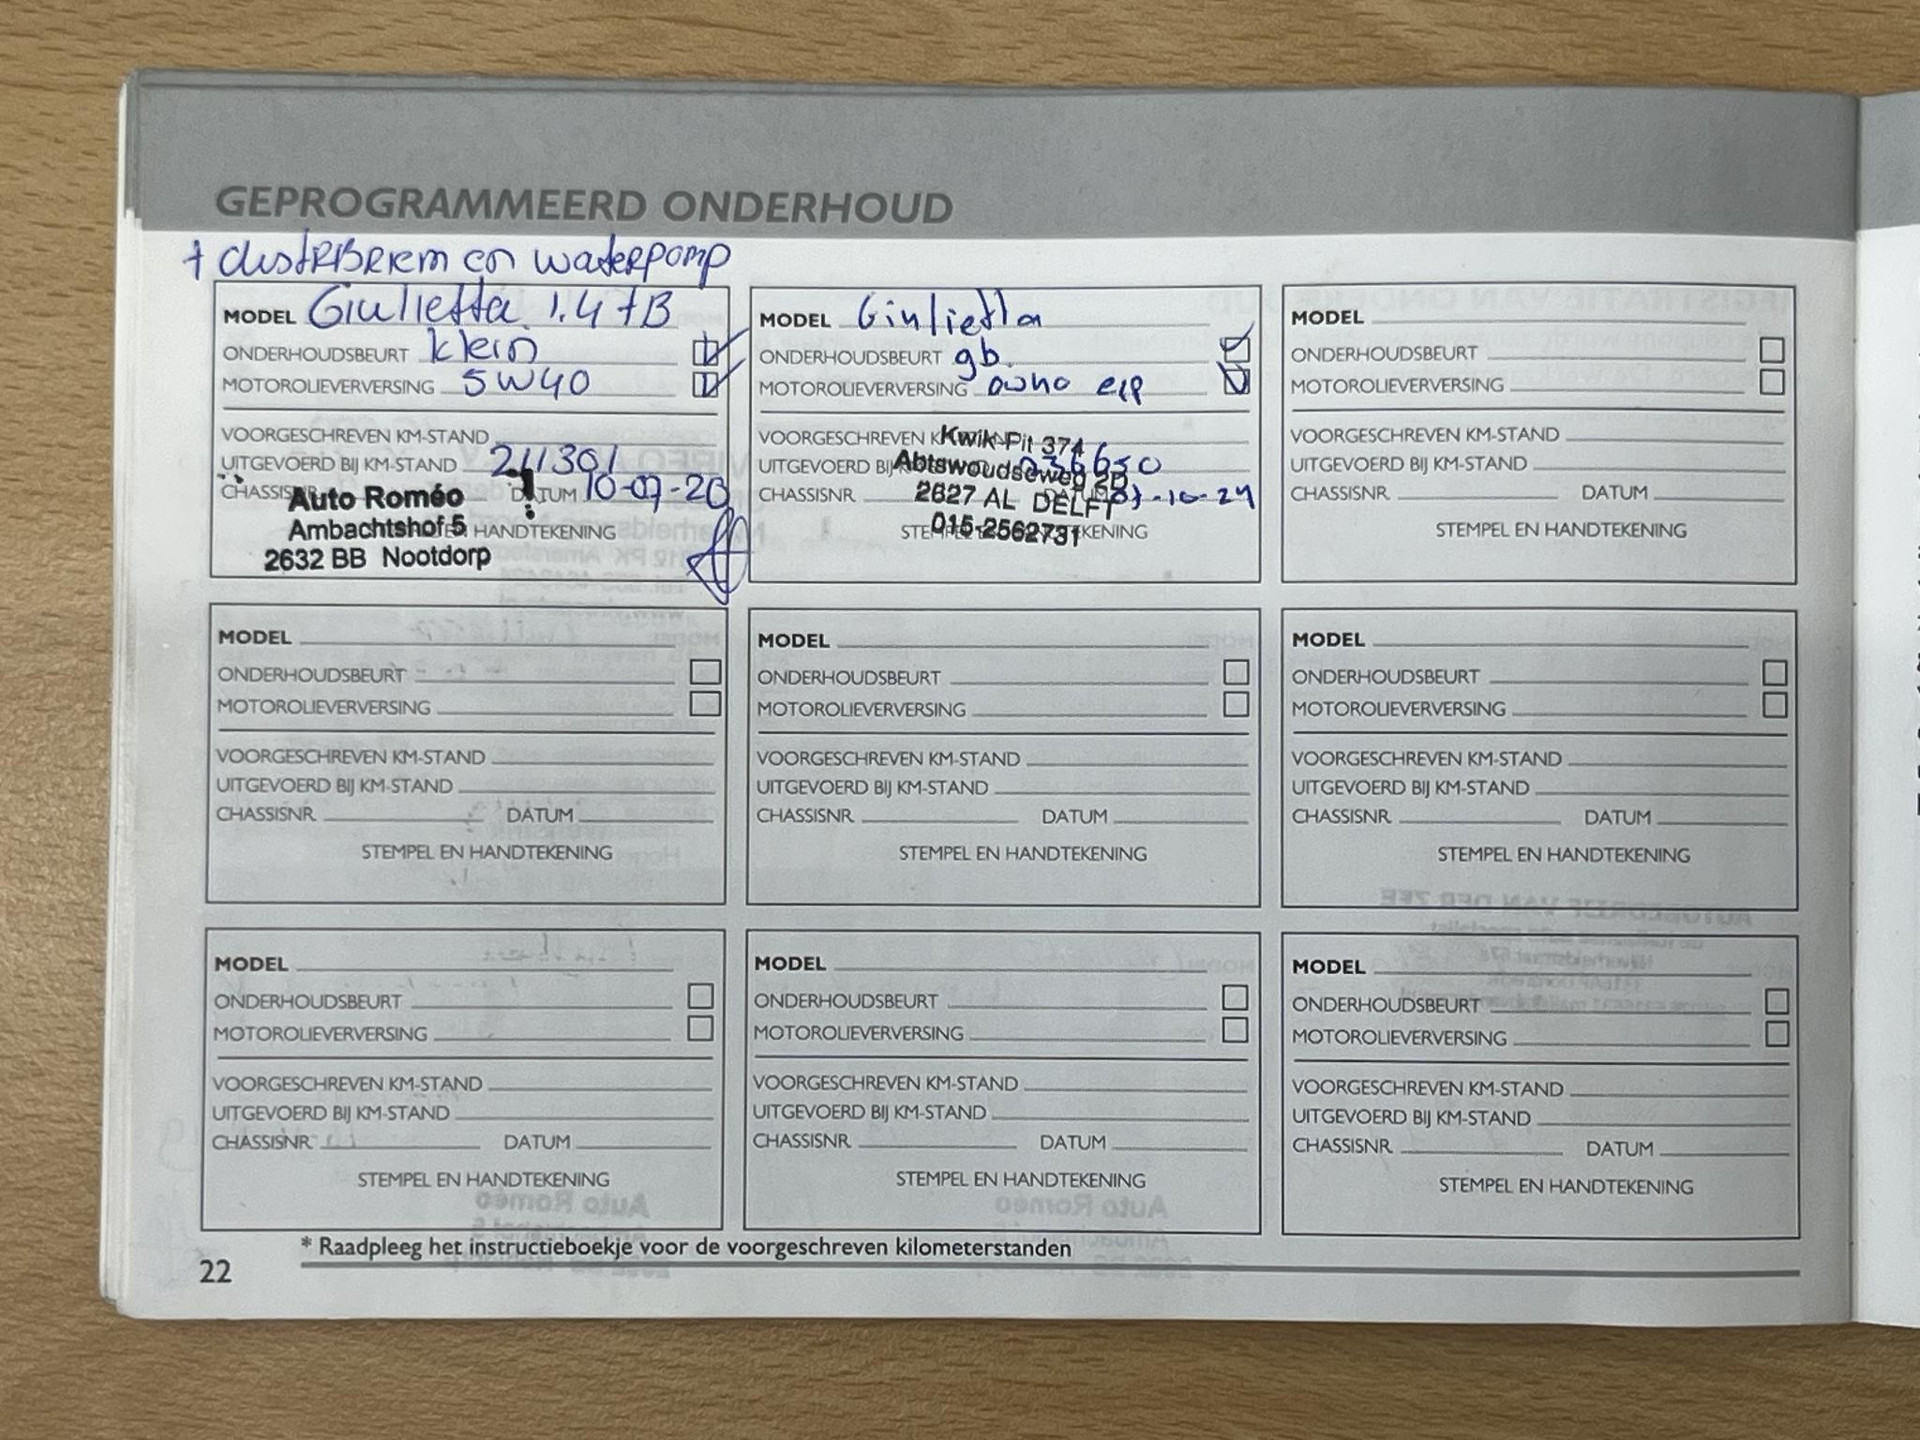 GEPROGRAMMEERD ONDERHOUD
+ distribriem en waterpomp
MODEL Giulietta 1.4 TB
ONDERHOUDSBEURT klein
MOTOROLIEVERVERSING 5W40
VOORGESCHREVEN KM-STAND
UITGEVOERD BIJ KM-STAND 211301
CHASSISNR DATUM 10-07-20
STEMPEL EN HANDTEKENING
Auto Roméo
Ambachtshof 5
2632 BB Nootdorp
MODEL Giulietta
ONDERHOUDSBEURT gb
MOTOROLIEVERVERSING
VOORGESCHREVEN KM-STAND
UITGEVOERD BIJ KM-STAND 236650
CHASSISNR DATUM
STEMPEL EN HANDTEKENING
Kwik-Fit 374
Abtswoudseweg 2D
2627 AL DELFT
015-2562731
MODEL
ONDERHOUDSBEURT
MOTOROLIEVERVERSING
VOORGESCHREVEN KM-STAND
UITGEVOERD BIJ KM-STAND
CHASSISNR DATUM
STEMPEL EN HANDTEKENING
MODEL
ONDERHOUDSBEURT
MOTOROLIEVERVERSING
VOORGESCHREVEN KM-STAND
UITGEVOERD BIJ KM-STAND
CHASSISNR DATUM
STEMPEL EN HANDTEKENING
MODEL
ONDERHOUDSBEURT
MOTOROLIEVERVERSING
VOORGESCHREVEN KM-STAND
UITGEVOERD BIJ KM-STAND
CHASSISNR DATUM
STEMPEL EN HANDTEKENING
MODEL
ONDERHOUDSBEURT
MOTOROLIEVERVERSING
VOORGESCHREVEN KM-STAND
UITGEVOERD BIJ KM-STAND
CHASSISNR DATUM
STEMPEL EN HANDTEKENING
MODEL
ONDERHOUDSBEURT
MOTOROLIEVERVERSING
VOORGESCHREVEN KM-STAND
UITGEVOERD BIJ KM-STAND
CHASSISNR DATUM
STEMPEL EN HANDTEKENING
MODEL
ONDERHOUDSBEURT
MOTOROLIEVERVERSING
VOORGESCHREVEN KM-STAND
UITGEVOERD BIJ KM-STAND
CHASSISNR DATUM
STEMPEL EN HANDTEKENING
MODEL
ONDERHOUDSBEURT
MOTOROLIEVERVERSING
VOORGESCHREVEN KM-STAND
UITGEVOERD BIJ KM-STAND
CHASSISNR DATUM
STEMPEL EN HANDTEKENING
* Raadpleeg het instructieboekje voor de voorgeschreven kilometerstanden
22